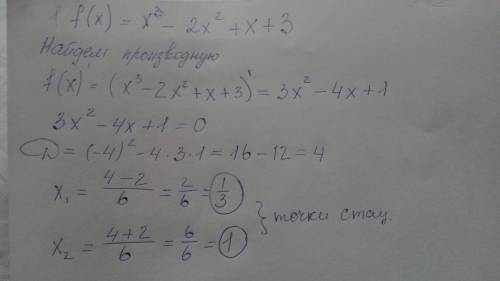 f(x) = x³ - 2x² + x + 3
Найдем производную
f(x)' = (x³ - 2x² + x + 3)' = 3x² - 4x + 1
3x² - 4x + 1 = 0
D = (-4)² - 4 · 3 · 1 = 16 - 12 = 4
x₁ = (4-2)/6 = 2/6 = 1/3
x₂ = (4+2)/6 = 6/6 = 1
} точки стац.